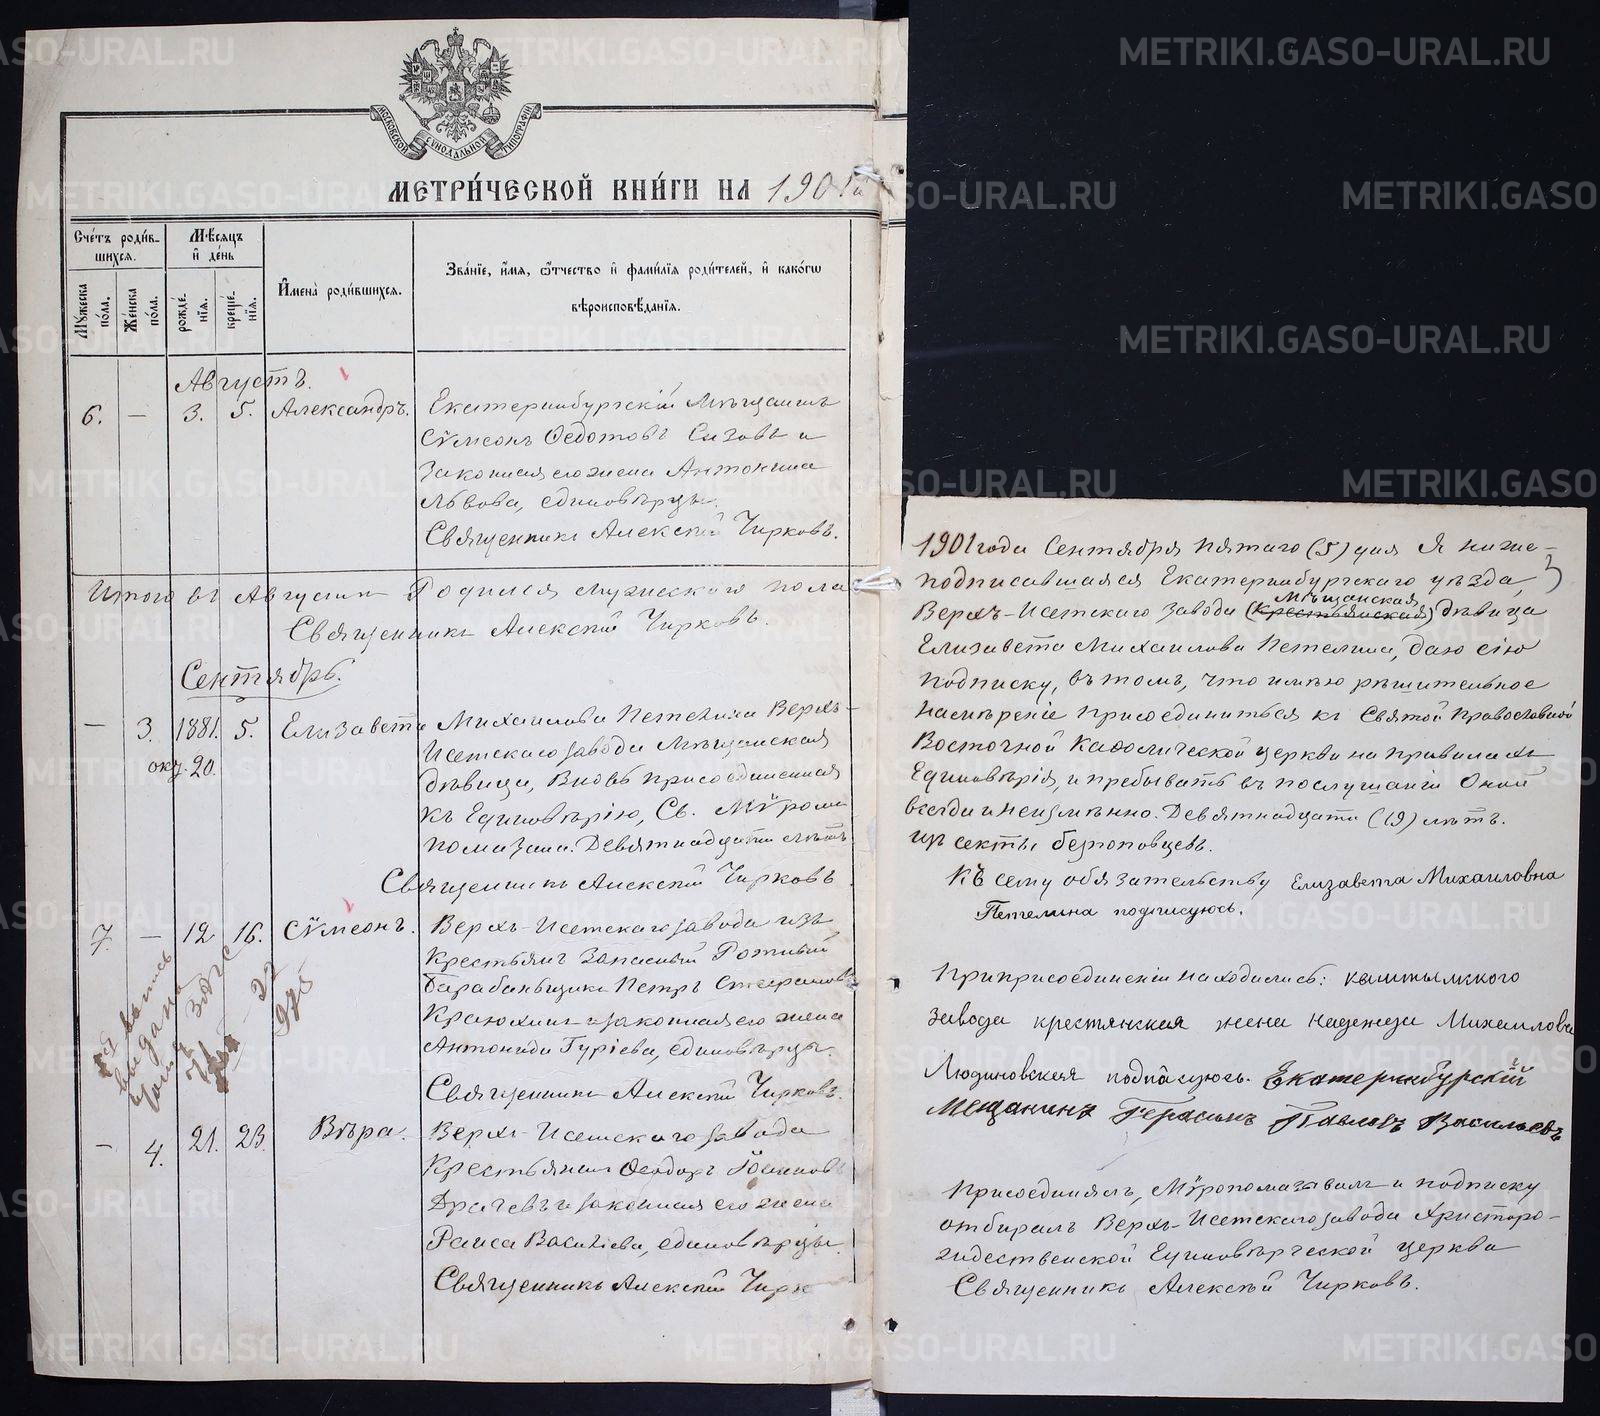 МОСКОВСКОЙ СУНОДАЛЬНОЙ ТИПОГРАФІИ
МЕТРИ́ЧЕСКОЙ КНИ́ГИ НА 1901й
Сче́тъ роди́в-
шихся.
Мѣ́сяцъ
и҆ де́нь
Мꙋ́жеска по́ла.
Же́нска по́ла.
рожде́-нїя.
креще́-нїя.
И҆мена̀ роди́вшихся.
Зва́нїе, и҆́мя, ѻ҆́тчество и҆ фами́лїя роди́телей, и҆ како́гѡ
вѣроисповѣ́данїя.
Августъ.
6. — 3. 5. Александръ. Екатеринбургскій мѣщанинъ
Сѵмеонъ Ѳедотовъ Сизовъ и
законная его жена Антонина
Львова, единовѣрцы.
Священникъ Алексій Чирковъ.
Итого въ Августѣ Родился мужескаго пола
Священникъ Алексій Чирковъ.
Сентябрь.
— 3. 1881. 5. Елизавета Михаилова Петелина Верхъ-
окт. 20. Исетскаго завода мѣщанская
дѣвица, вновь присоединенная
къ Единовѣрію, Св. Мѵромъ
помазана. Девятнадцати лѣтъ.
Священникъ Алексій Чирковъ
7. — 12 16. Сѵмеонъ. Верхъ-Исетскаго завода изъ
крестьянъ запасный Ротный
Барабанщикъ Петръ Стефановъ
Краюхинъ и законная его жена
Антонида Гуріева, единовѣрцы.
Священникъ Алексій Чирковъ.
— 4. 21. 23. Вѣра. Верхъ-Исетскаго завода
крестьянинъ Ѳеодоръ Іоанновъ
Драчевъ и законная его жена
Раиса Васильева, единовѣрцы.
Священникъ Алексій Чирк
выпись
выдана
1901 года Сентября пятаго (5) дня Я ниже-
подписавшаяся Екатеринбургскаго уѣзда,
Верхъ-Исетскаго завода (крестьянская) мѣщанская дѣвица
Елизавета Михаилова Петелина, даю сію
подписку, въ томъ, что имѣю рѣшительное
намѣреніе присоединиться къ Святой Православной
Восточной Каѳолической церкви на правилахъ
Единовѣрія, и пребывать въ послушаніи Оной
всегда и неизмѣнно. Девятнадцати (19) лѣтъ.
изъ секты безпоповцевъ.
Къ сему обязательству Елизавета Михаиловна
Петелина подписуюсь.
При присоединеніи находились: кыштымского
завода крестянская жена Надежда Михаилова
Людиновская подписуюсь. Екатеринбурскій
мещанинъ Герасимъ Павловъ Васильевъ
Присоединялъ, Мѵропомазывалъ и подписку
отбиралъ Верхъ-Исетскаго завода Христоро-
ждественской Единовѣрческой церкви
Священникъ Алексѣй Чирковъ.
METRIKI.GASO-URAL.RU